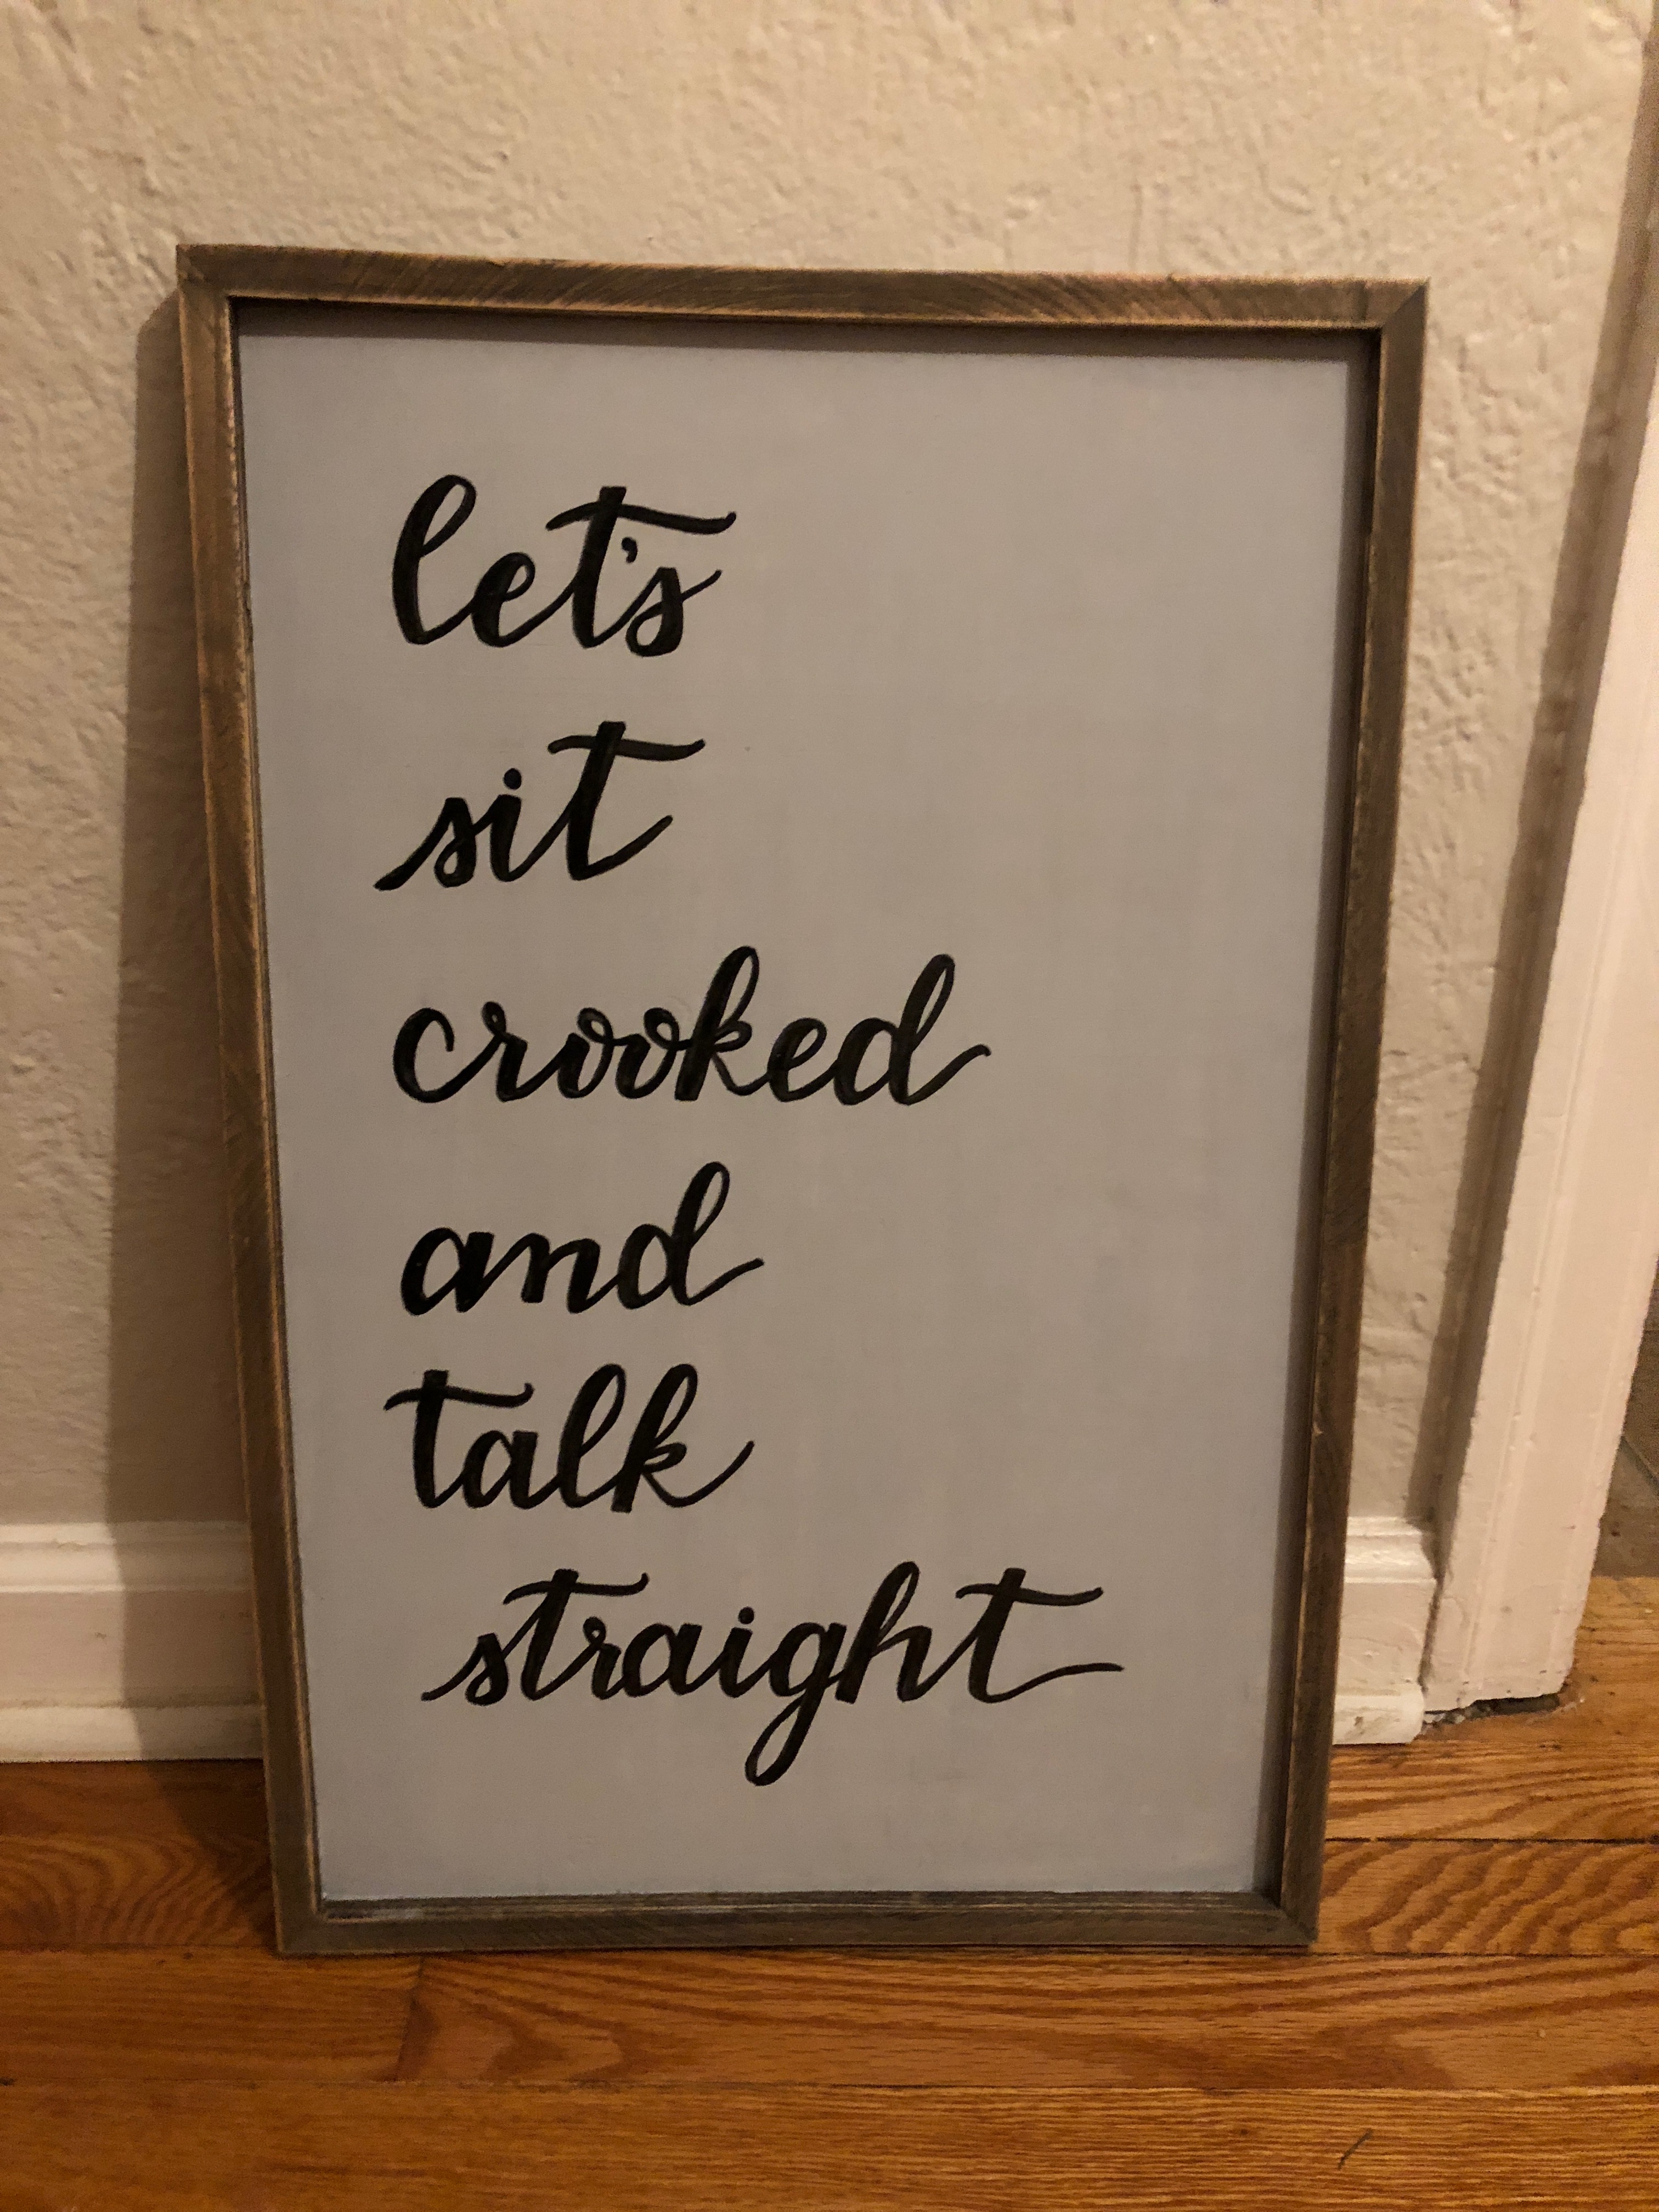 let's
sit
crooked
and
talk
straight